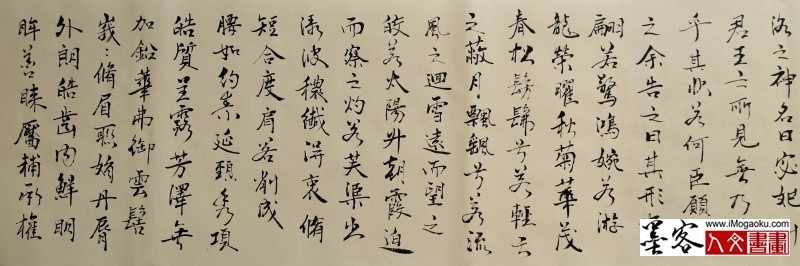 洛之神名曰宓妃
君王之所見無乃
乎其狀若何臣願
之余告之曰其形
翩若驚鴻婉若游
龍榮曜秋菊華茂
春松髣髴兮若輕雲
之蔽月飄颻兮若流
風之迴雪遠而望之
皎若太陽升朝霞迫
而察之灼若芙蕖出
淥波穠纖得衷脩
短合度肩若削成
腰如約素延頸秀項
皓質呈露芳澤無
加鉛華弗御雲髻
峩峩脩眉聯娟丹脣
外朗皓齒内鮮明
眸善睞靨輔承權
www.iMogaoku.com
墨客
人文書畫